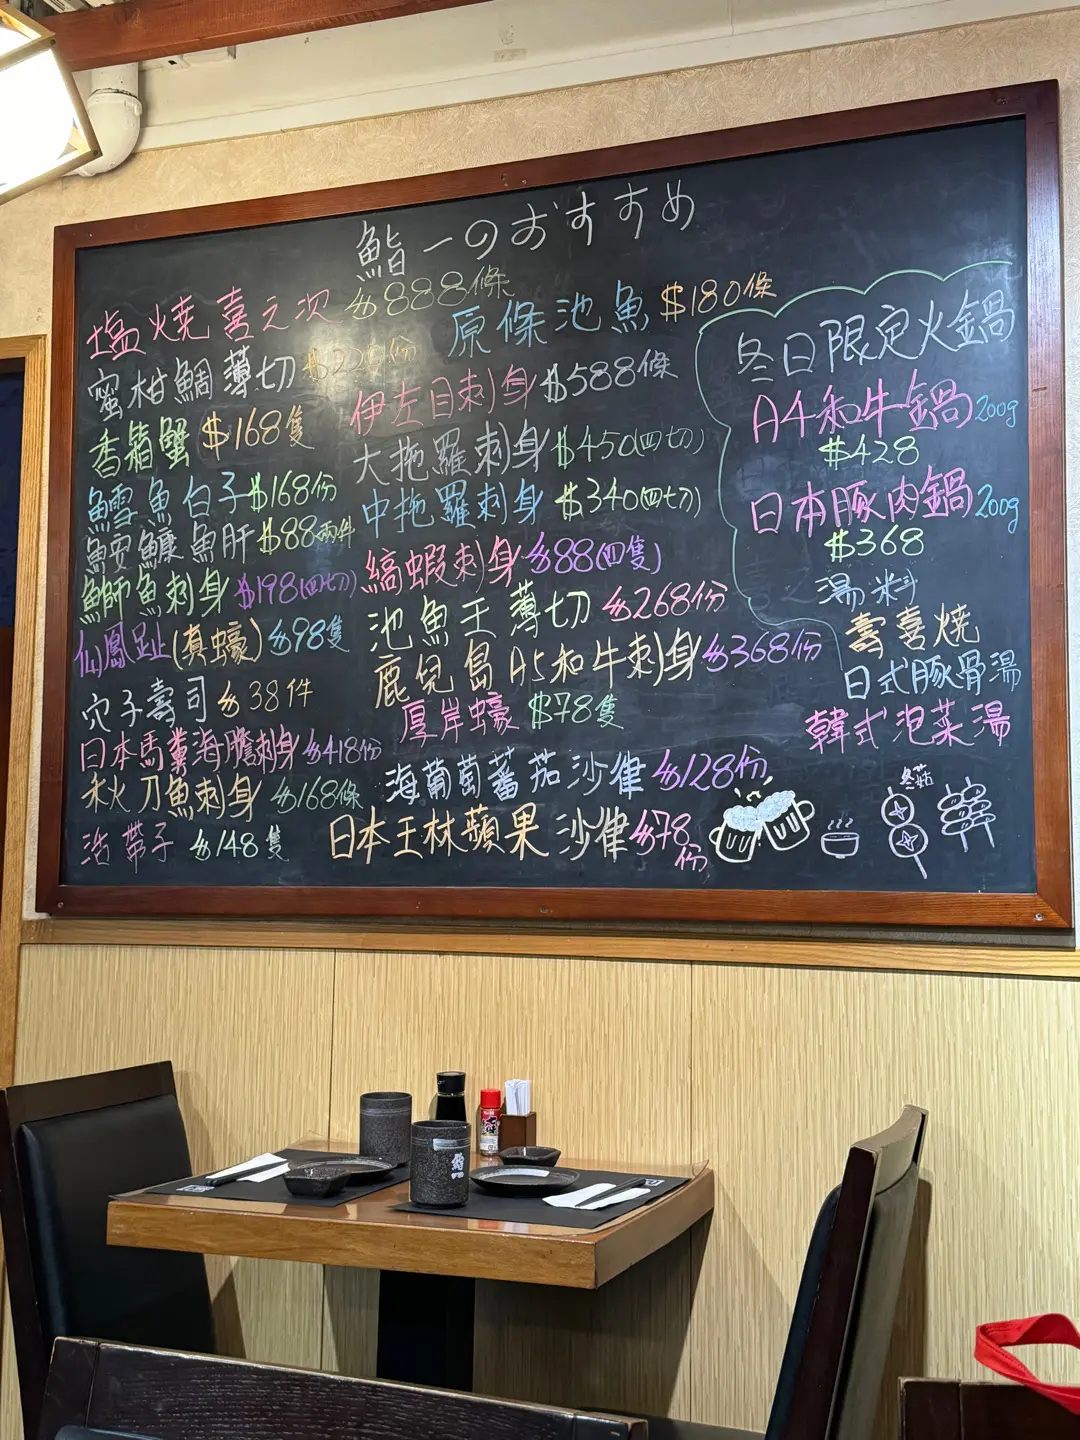 鮨一のおすすめ
塩燒喜之次 $888條
蜜柑鯛薄切 $220份
香箱蟹 $168隻
鱈魚白子 $168份
鮟鱇魚肝 $88兩件
鰤魚刺身 $198(四切)
仙鳳趾(真蠔) $98隻
穴子壽司 $38件
日本馬糞海膽刺身 $418份
秋刀魚刺身 $168條
活帶子 $148隻
原條池魚 $180條
伊左目刺身 $588條
大拖羅刺身 $450(四切)
中拖羅刺身 $340(四切)
縞蝦刺身 $88(四隻)
池魚王薄切 $268份
鹿兒島A5和牛刺身 $368份
厚岸蠔 $78隻
海葡萄蕃茄沙律 $128份
日本王林蘋果沙律 $78份
冬日限定火鍋
A4和牛鍋 200g
$428
日本豚肉鍋 200g
$368
湯料
壽喜燒
日式豚骨湯
韓式泡菜湯
冬菇